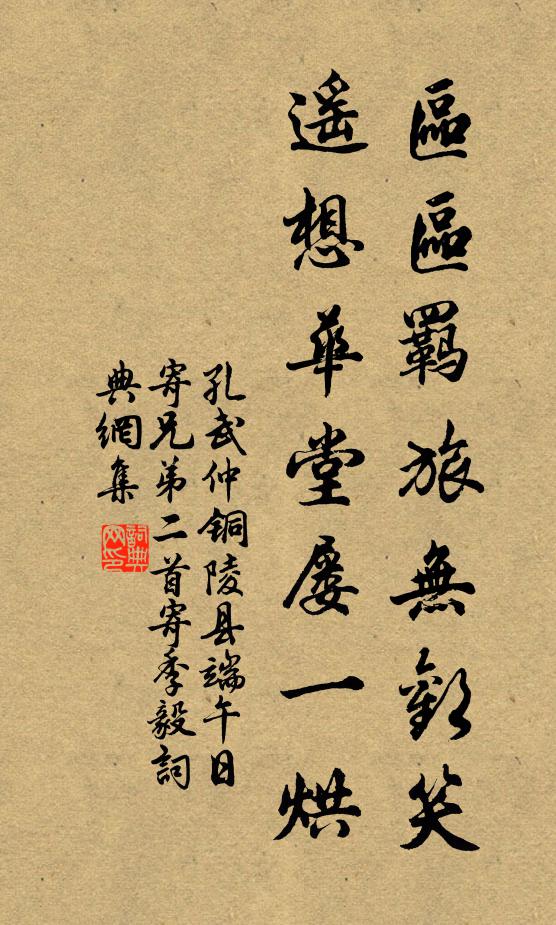 區區羈旅無歡笑
遥想華堂屡一烘
孔武仲铜陵县端午日
寄兄弟二首寄季毅詞
典網集
詞典
网印